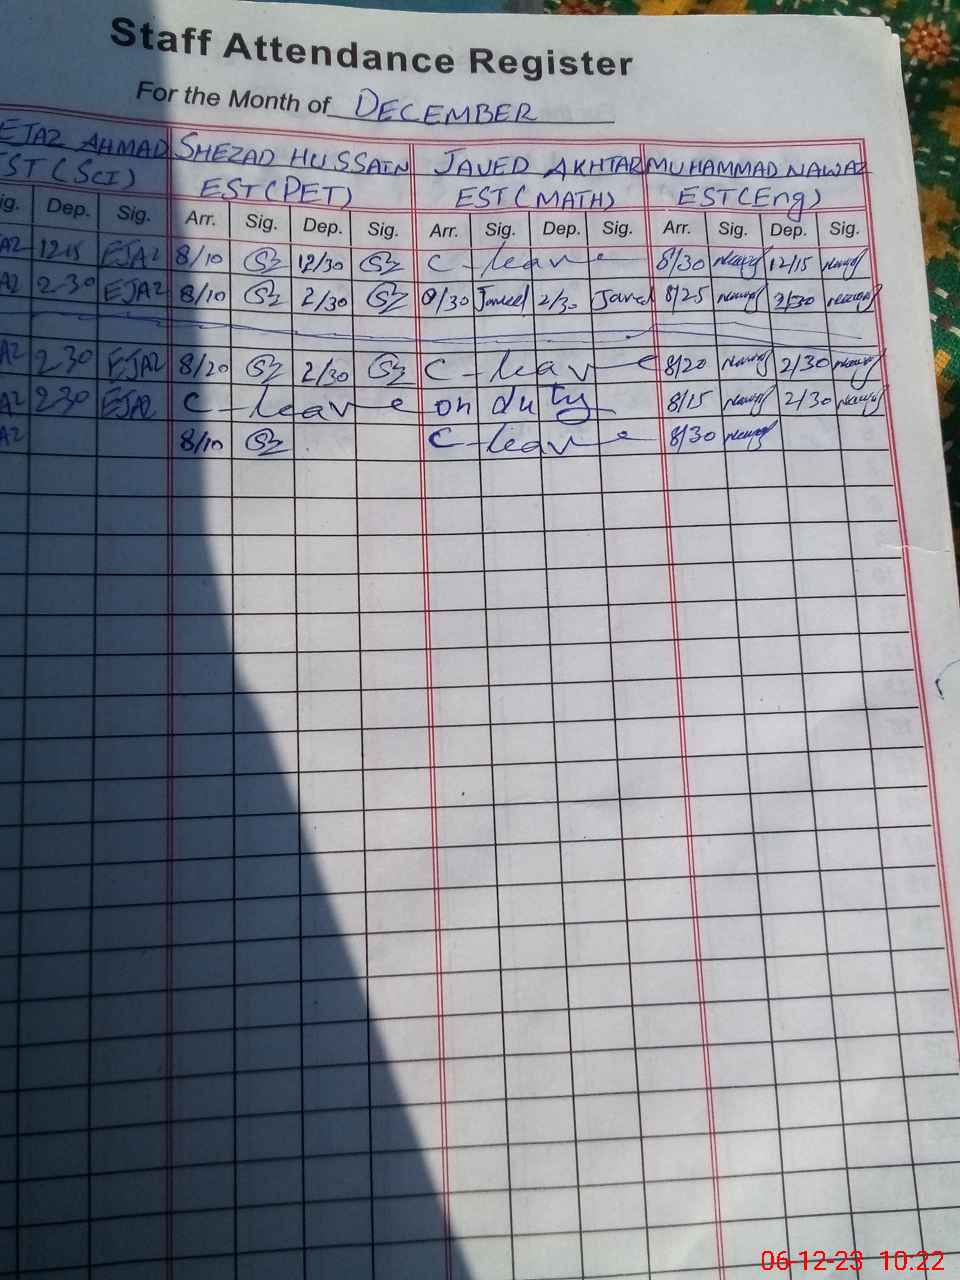 Staff Attendance Register
For the Month of DECEMBER
EJAZ AHMAD SHEZAD HUSSAIN JAVED AKHTAR MUHAMMAD NAWAZ
EST (SCI) EST (PET) EST (MATH) EST (Eng)
ig. Dep. Sig. Arr. Sig. Dep. Sig. Arr. Sig. Dep. Sig. Arr. Sig. Dep. Sig.
AZ 12 15 EJAZ 8/10 12/30 C-leave 8/30 12/15
AZ 2-30 EJAZ 8/10 2/30 8/30 Javed 2/30 Javed 8/25 2/30
AZ 2 30 EJAZ 8/20 2/30 C-leave 8/20 2/30
AZ 2 30 EJAZ C-leave on duty 8/15 2/30
AZ 8/10 C-leave 8/30
06-12-23 10:22